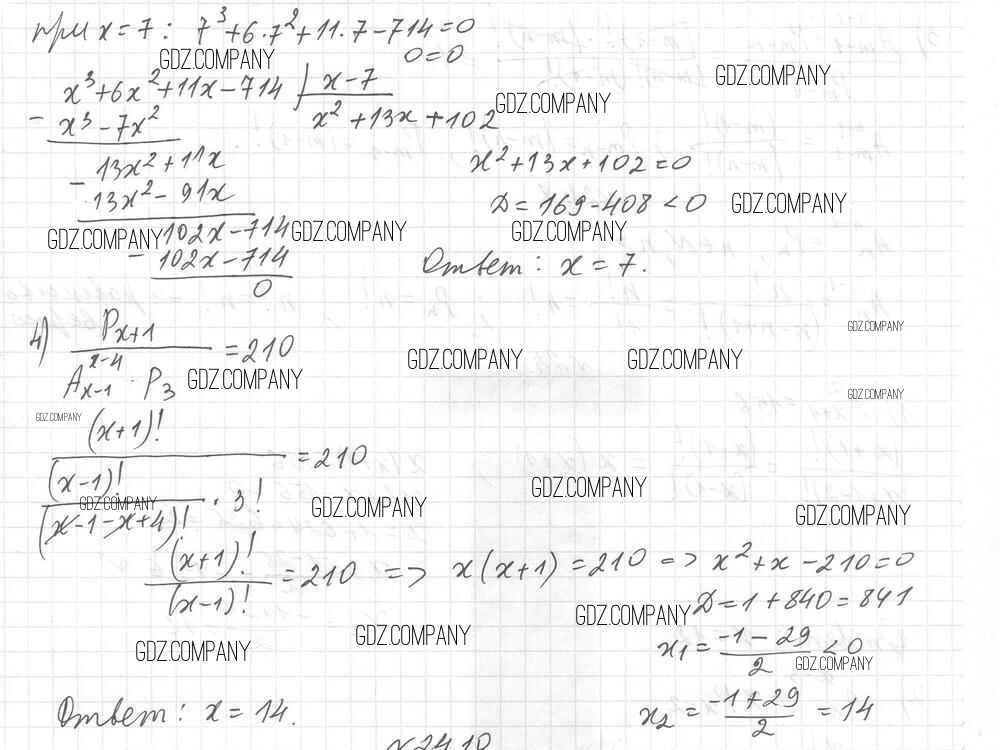 при x = 7 : 7³ + 6·7² + 11·7 - 714 = 0
GDZ.COMPANY 0 = 0
GDZ.COMPANY
x³ + 6x² + 11x - 714 | x - 7
GDZ.COMPANY
- x³ - 7x² x² + 13x + 102
13x² + 11x x² + 13x + 102 = 0
- 13x² - 91x D = 169 - 408 < 0 GDZ.COMPANY
GDZ.COMPANY 102x - 714 GDZ.COMPANY GDZ.COMPANY
- 102x - 714 Ответ : x = 7.
0
4) P_{x+1} / (A_{x-1}^{x-4} · P_3) = 210
GDZ.COMPANY
GDZ.COMPANY GDZ.COMPANY
GDZ.COMPANY
GDZ.COMPANY
GDZ.COMPANY
(x+1)! / ((x-1)! / (x-1-x+4)! · 3!) = 210
GDZ.COMPANY
GDZ.COMPANY GDZ.COMPANY
GDZ.COMPANY
(x+1)! / (x-1)! = 210 => x(x+1) = 210 => x² + x - 210 = 0
GDZ.COMPANY D = 1 + 840 = 841
GDZ.COMPANY GDZ.COMPANY x₁ = (-1 - 29) / 2 < 0
GDZ.COMPANY
Ответ : x = 14. x₂ = (-1 + 29) / 2 = 14